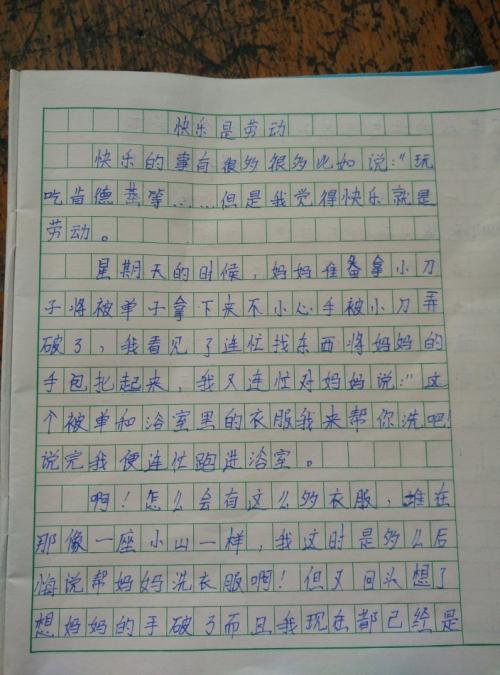 快乐是劳动
快乐的事有很多很多比如说："玩
吃肯德基等……但是我觉得快乐就是
劳动。
星期天的时候，妈妈准备拿小刀
子将被单子拿下来不小心手被小刀弄
破了，我看见了连忙找东西将妈妈的
手包扎起来，我又连忙对妈妈说："这
个被单和浴室里的衣服我来帮你洗吧!
说完我便连忙跑进浴室。
啊！怎么会有这么多衣服，堆在
那像一座小山一样，我这时是多么后
悔说帮妈妈洗衣服啊！但又回头想了
想妈妈的手破了而且我现在都已经是